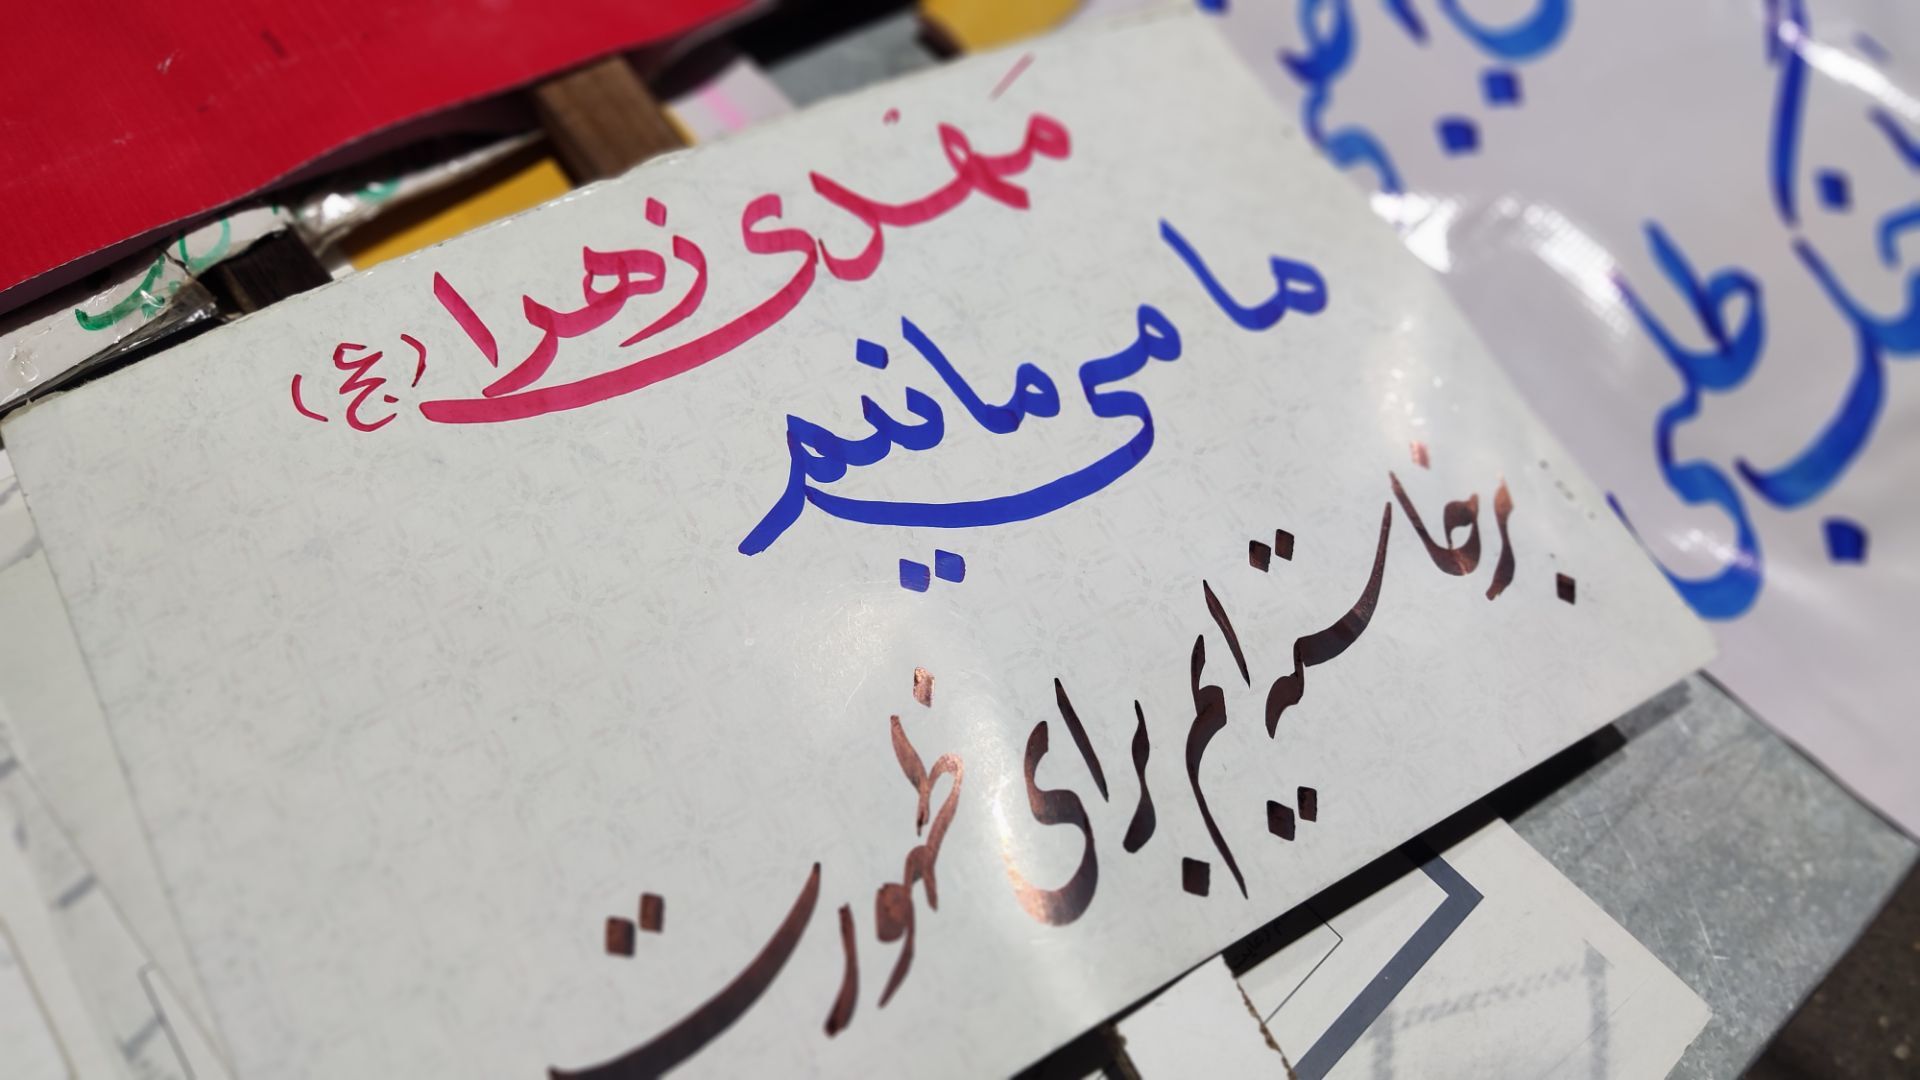 مهدی زهرا (عج)
ما می‌مانیم
برخاسته ایم برای ظهورت
طلبی